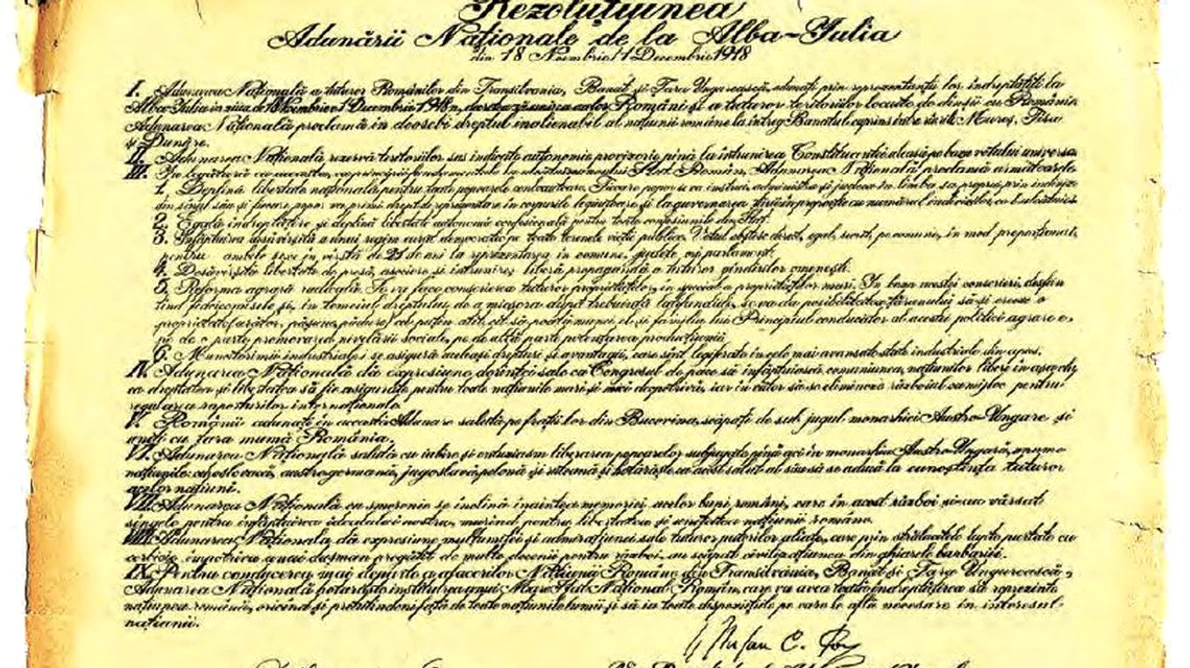 Rezoluțiunea
Adunării Naționale de la Alba-Iulia
din 18 Noembrie/1 Decembrie 1918
I. Adunarea Națională a tuturor Românilor din Transilvania, Banat și Țara Ungurească, adunați prin reprezentanții lor îndreptățiți la
Alba-Iulia în ziua de 18 Noembrie/1 Decembrie 1918, decretează unirea acelor Români și a tuturor teritoriilor locuite de dînșii cu România.
Adunarea Națională proclamă în deosebi dreptul inalienabil al națiunii române la întreg Banatul cuprins între rîurile Mureș, Tisa
și Dunăre.
II. Adunarea Națională rezervă teritoriilor sus indicate autonomie provizorie pînă la întrunirea Constituantei aleasă pe baza votului univers
III. În legătură cu aceasta, ca principii fundamentale la alcătuirea noului Stat Român, Adunarea Națională proclamă următoarele
1. Deplină libertate națională pentru toate popoarele conlocuitoare. Fiecare popor se va instrui, administra și judeca în limba sa proprie prin indivizi
din sînul său și fiecare popor va primi drept de reprezentare în corpurile legiuitoare și la guvernarea țării în proporție cu numărul indivizilor ce
2. Egală îndreptățire și deplină libertate autonomă confesională pentru toate confesiunile din Stat.
3. Înfăptuirea desăvîrșită a unui regim curat democratic pe toate terenele vieții publice. Votul obștesc, direct, egal, secret, pe comune, în mod proporțional,
pentru ambele sexe, în vîrstă de 21 de ani la reprezentarea în comune, județe, ori parlament.
4. Desăvîrșită libertate de presă, asociere și întrunire; liberă propagandă a tuturor gîndurilor omenești.
5. Reforma agrară radicală. Se va face conscrierea tuturor proprietăților, în special a proprietăților mari. În baza acestei conscrieri, desfiin
țînd fideicomisele și, în temeiul dreptului de a micșora după trebuință latifundiile, se va da posibilitatea țăranului să-și creeze o
proprietate (arător, pășune, pădure) cel puțin atît cît să poată munci el și familia lui. Principiul conducător al acestei politici agrare e
pe de o parte promovarea nivelării sociale, pe de altă parte potențarea producțiunii.
6. Muncitorimei industriale i se asigură aceleași drepturi și avantagii, care sînt legiferate în cele mai avansate state industriale din apus.
IV. Adunarea Națională dă expresiune dorinței sale ca Congresul de pace să înfăptuiască comuniunea națiunilor libere în așa chip
ca dreptatea și libertatea să fie asigurate pentru toate națiunile mari și mici deopotrivă, iar în viitor să se elimineze războiul ca mijloc pentru
regularea raporturilor internaționale.
V. Românii adunați în această Adunare salută pe frații lor din Bucovina, scăpați de sub jugul monarhiei Austro-Ungare și
uniți cu țara mumă România.
VI. Adunarea Națională salută cu iubire și entuziasm liberarea popoarelor subjugate pînă aci în monarhia Austro-Ungară, anume
națiunile cehoslovacă, austrogermană, jugoslavă, polonă și ruteană și hotărăște ca acest salut al său să se aducă la cunoștința tuturor
acelor națiuni.
VII. Adunarea Națională cu smerenie se închină înaintea memoriei acelor bravi români, care în acest război și-au vărsat
sîngele pentru înfăptuirea idealului nostru, murind pentru libertatea și unitatea națiunii române.
VIII. Adunarea Națională dă expresiune mulțumirei și admirațiunei sale tuturor puterilor aliate, care prin strălucitele lupte purtate cu
cerbicie împotriva unui dușman pregătit de multe decenii pentru război, au scăpat civilizațiunea din ghiarele barbariei.
IX. Pentru conducerea mai departe a afacerilor Națiunii Române din Transilvania, Banat și Țara Ungurească,
Adunarea Națională hotărăște instituirea unui Mare Sfat Național Român, care va avea toată îndreptățirea să reprezinte
națiunea română, oricînd și pretutindeni față de toate națiunile lumii și să ia toate dispozițiile pe care le află necesare în interesul
națiunii.